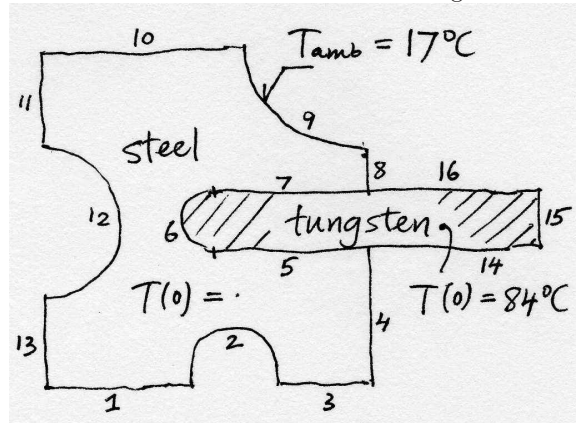 10
Tamb = 17°C
11
9
steel
8
16
7
12
6
tungsten
15
5
14
T(0) = .
T(0) = 84°C
4
13
2
1
3